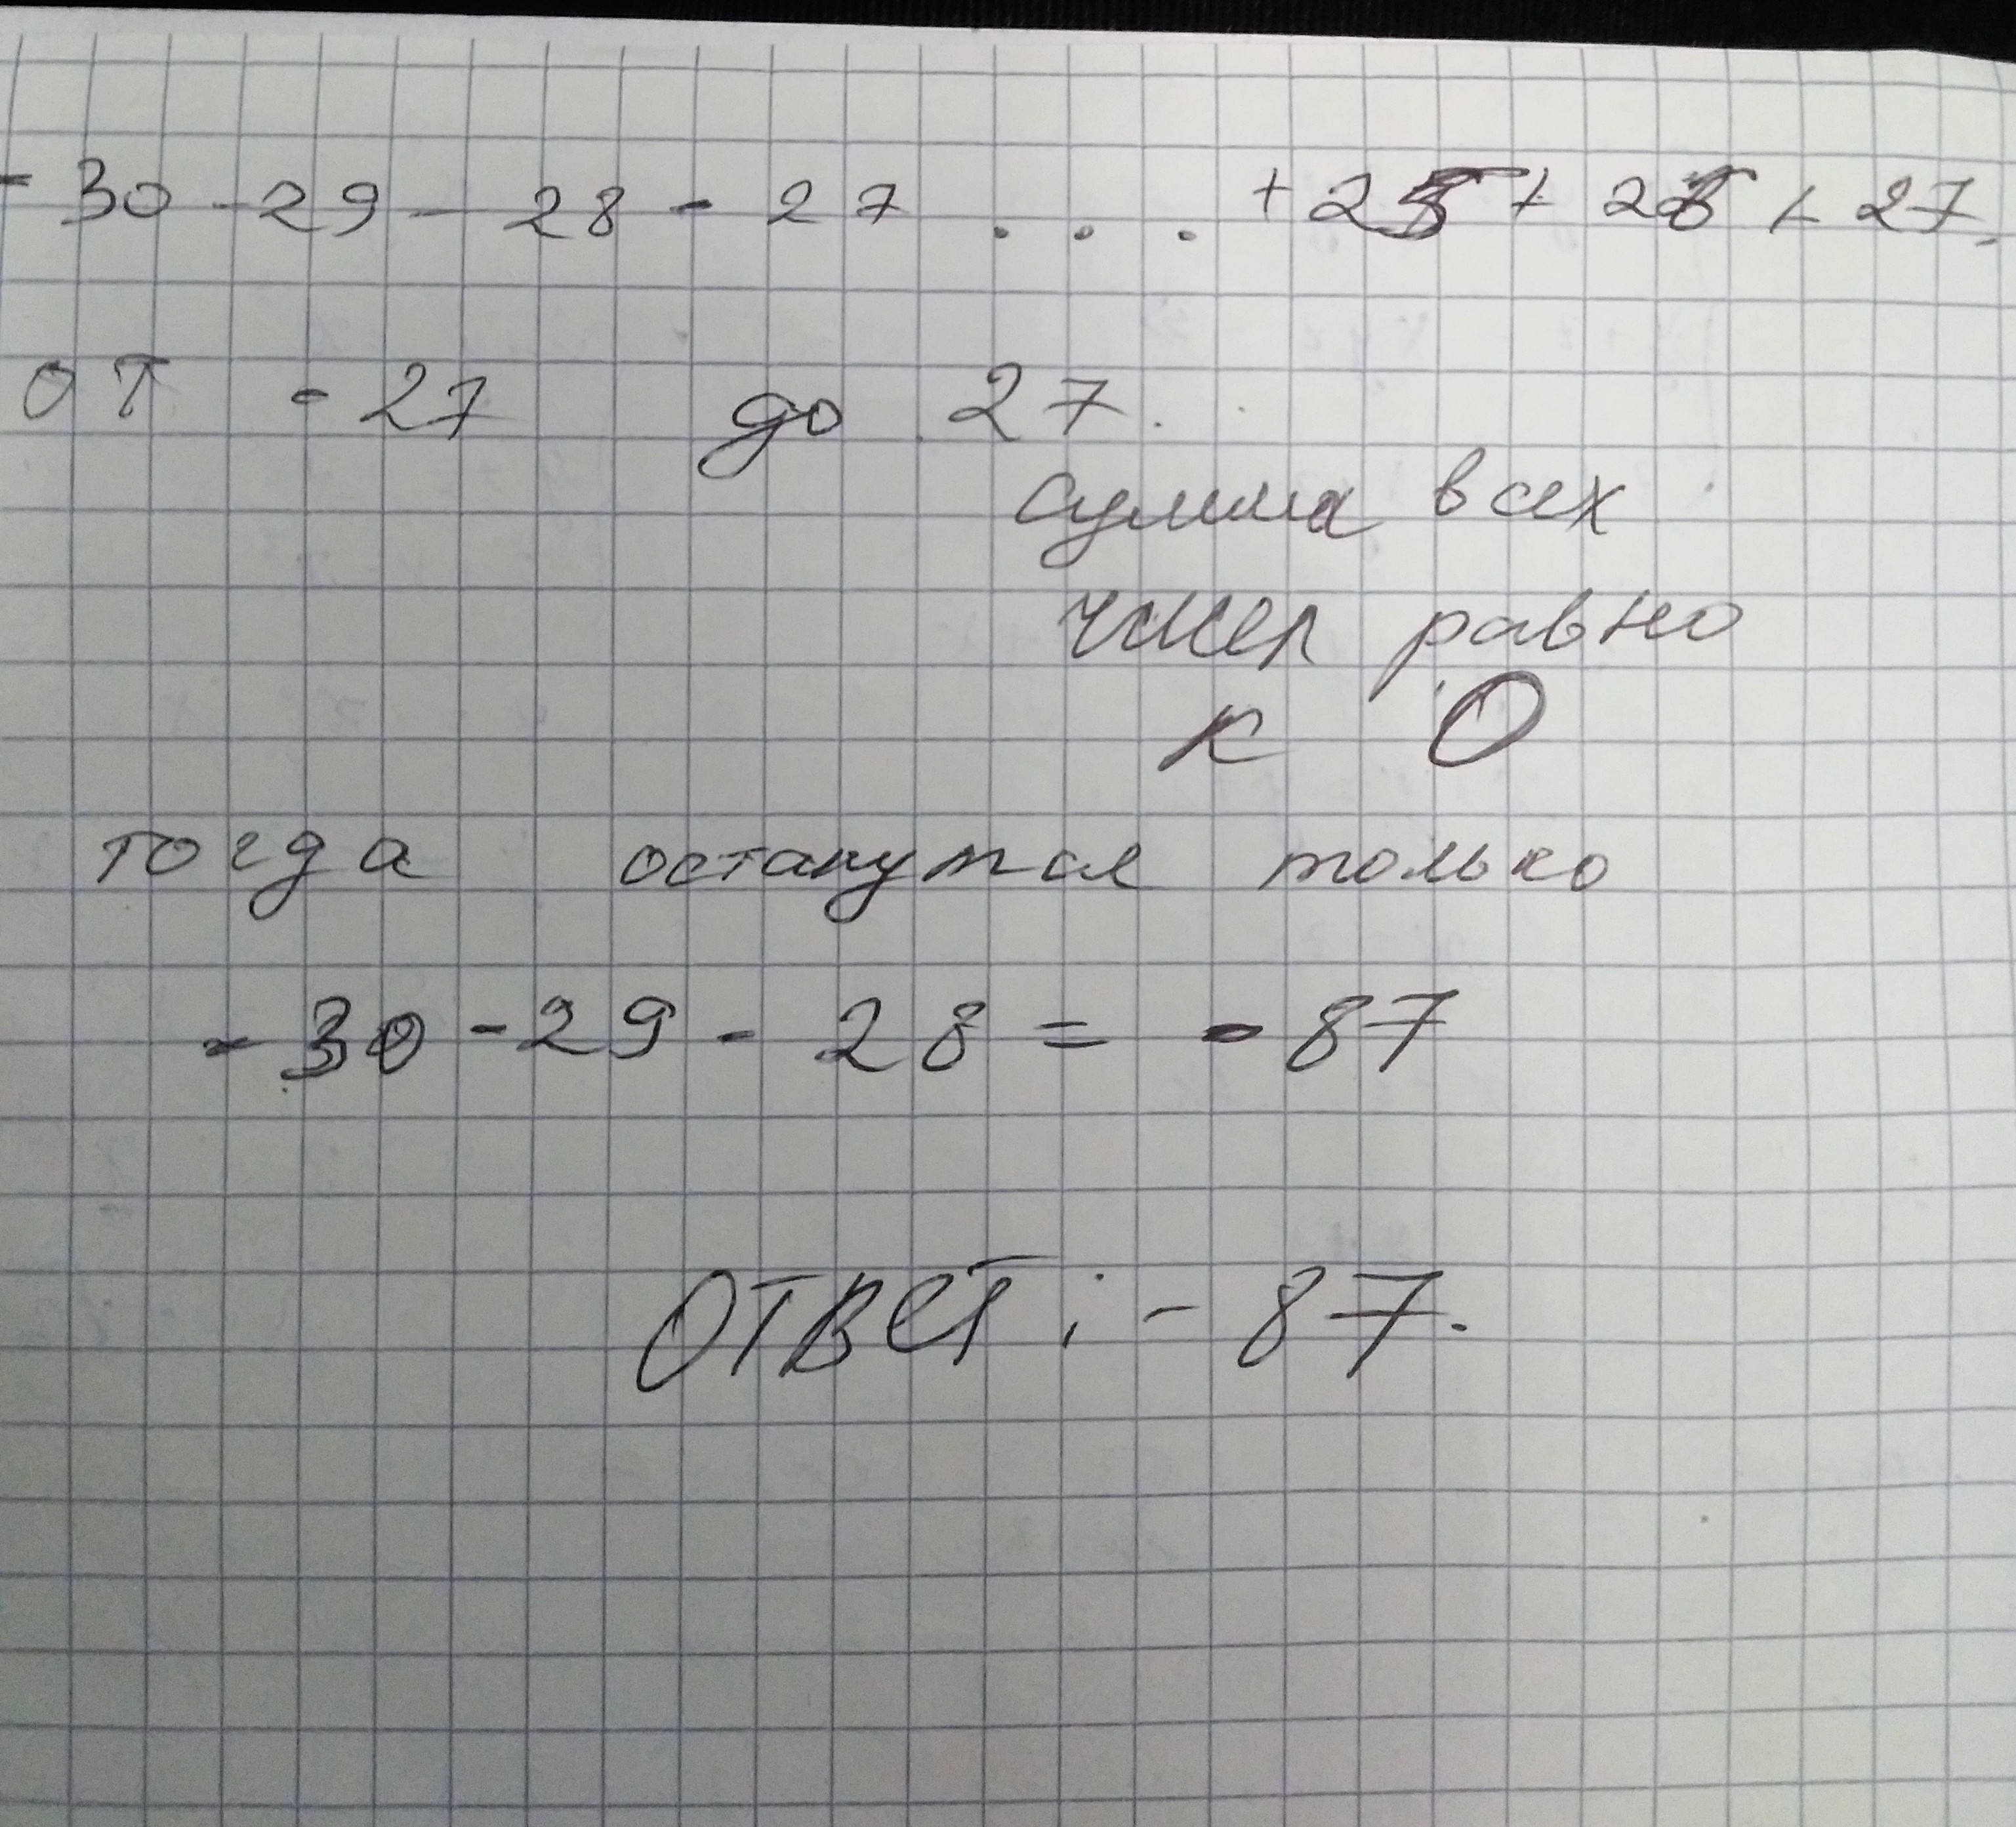 - 30 - 29 - 28 - 27 . . . + 25 + 26 + 27.
от - 27 до 27.
сумма всех
чисел равно
к 0
тогда останутся только
- 30 - 29 - 28 = - 87
Ответ: - 87.